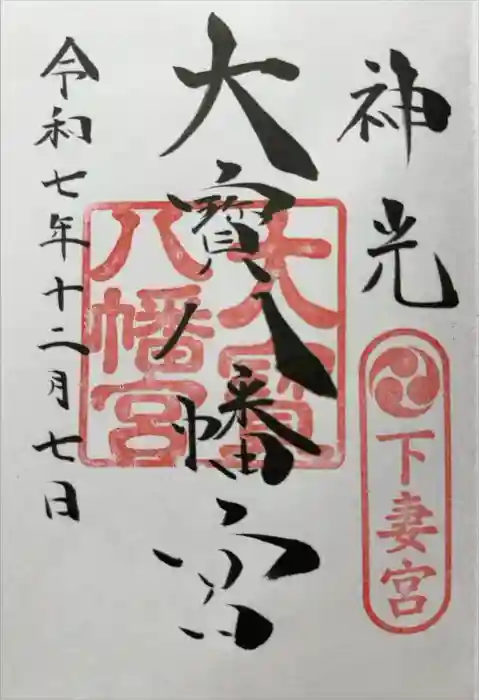 神光
下妻宮
大寶八幡宮
大寶八幡宮
令和七年十二月七日